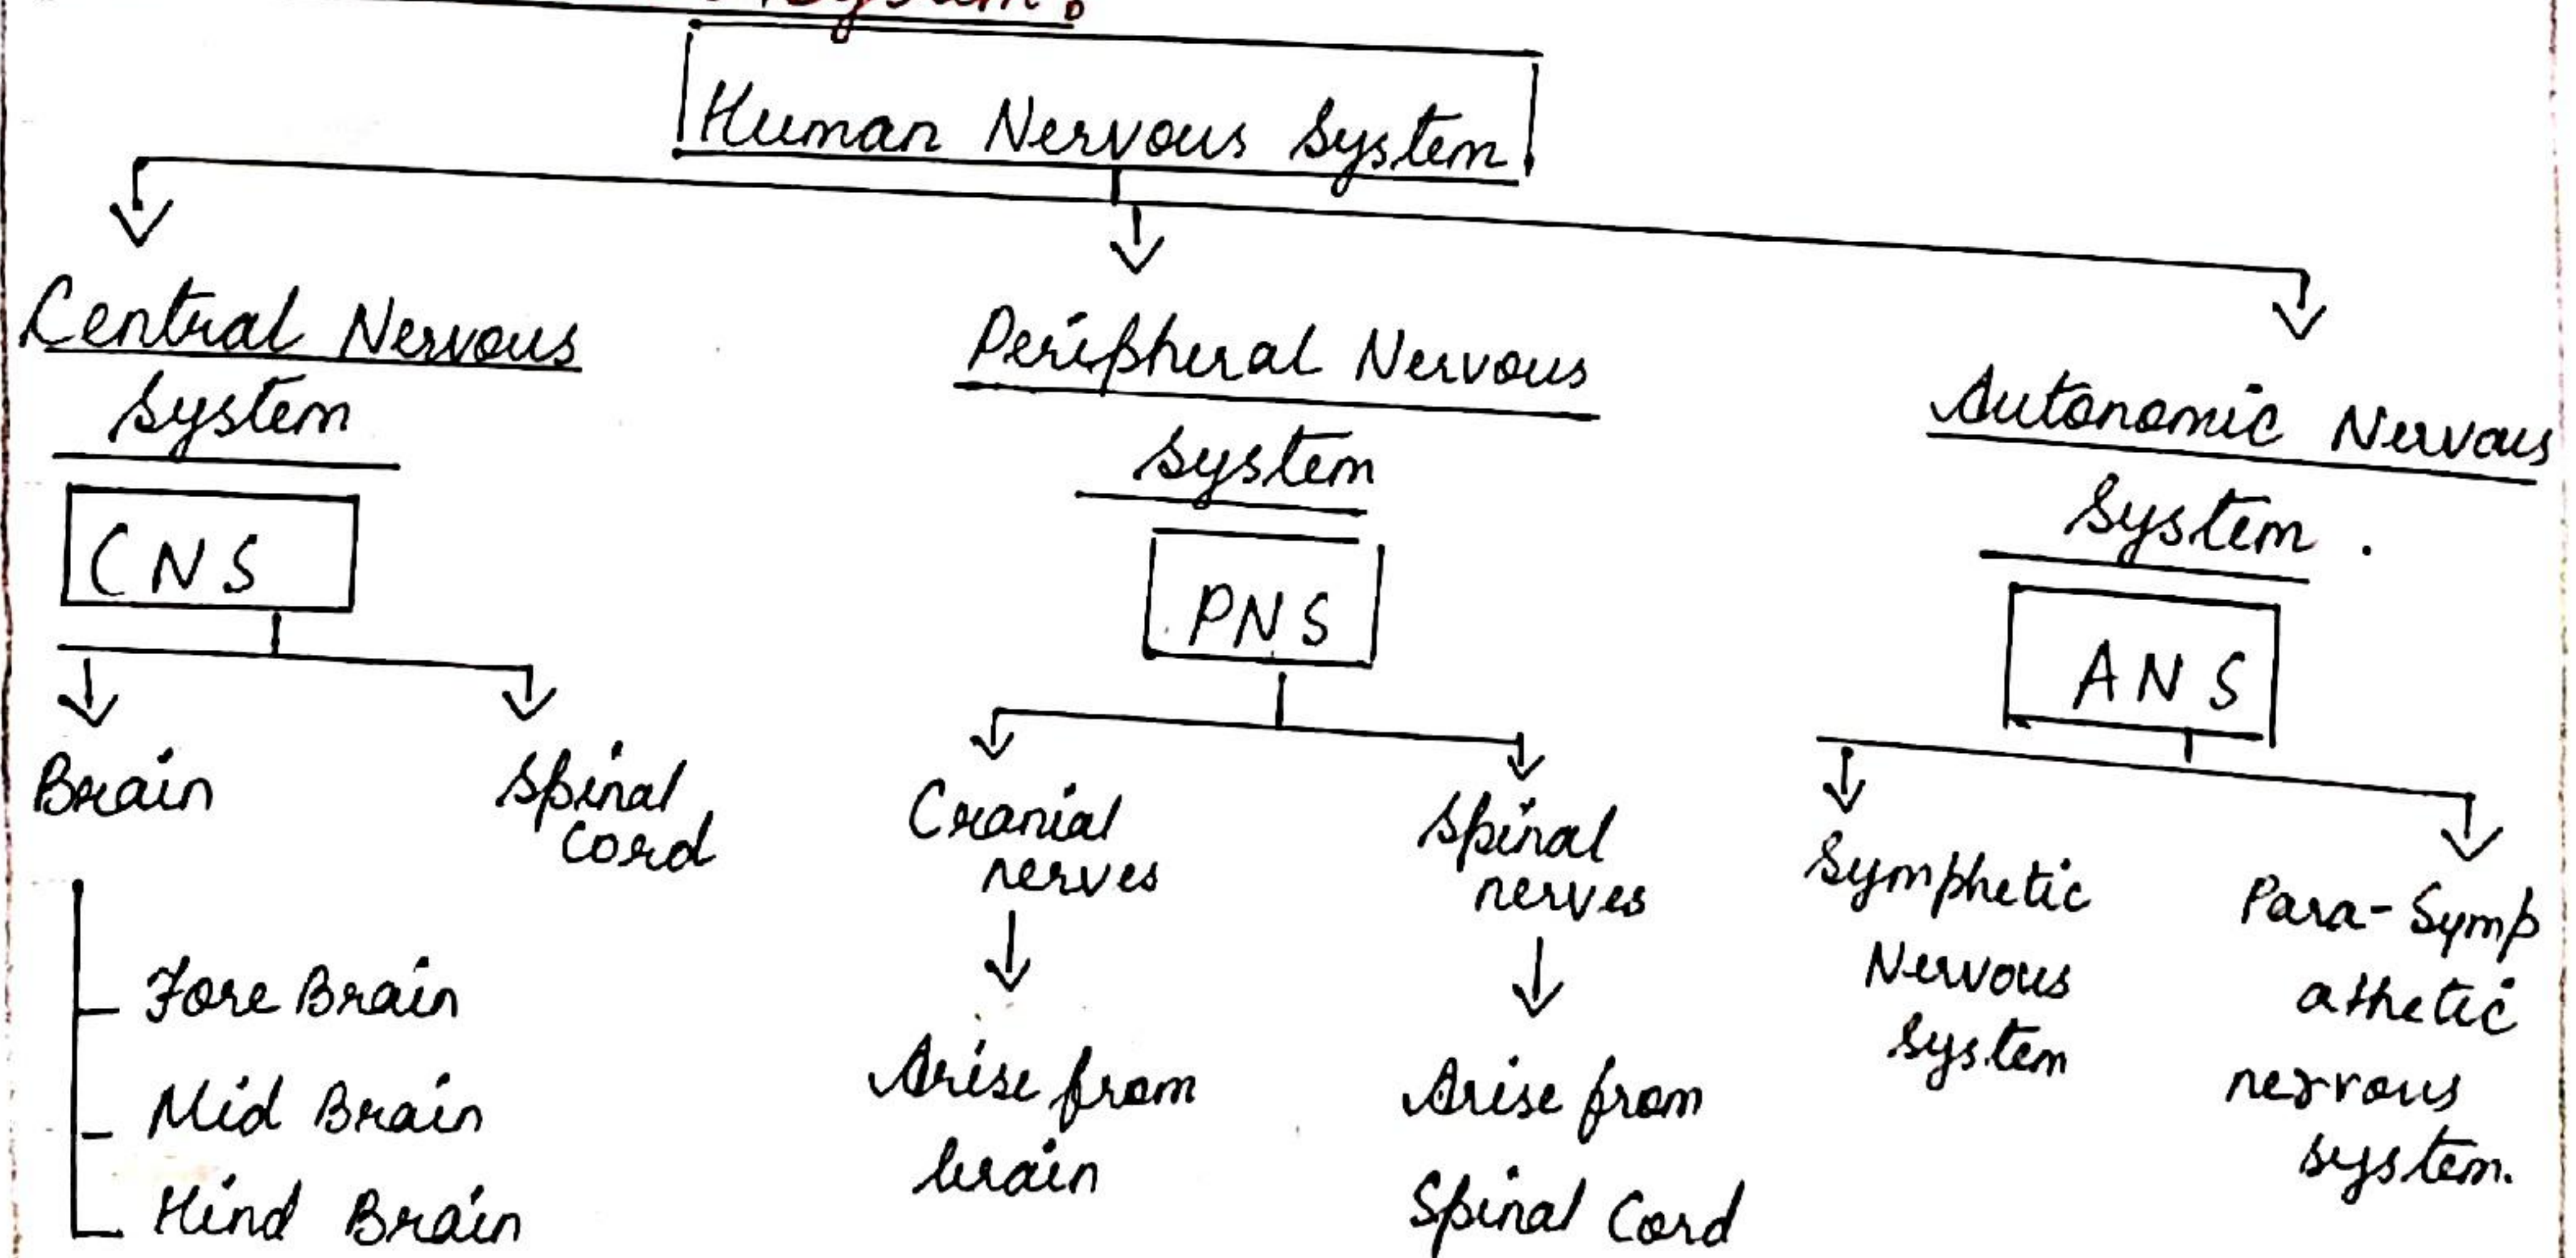 System:
Human Nervous System
Central Nervous
System
CNS
Brain
Spinal
Cord
Fore Brain
Mid Brain
Hind Brain
Peripheral Nervous
System
PNS
Cranial
nerves
Arise from
brain
Spinal
nerves
Arise from
Spinal Cord
Autonomic Nervous
System.
ANS
Symphetic
Nervous
System
Para-Symp
athetic
nervous
system.